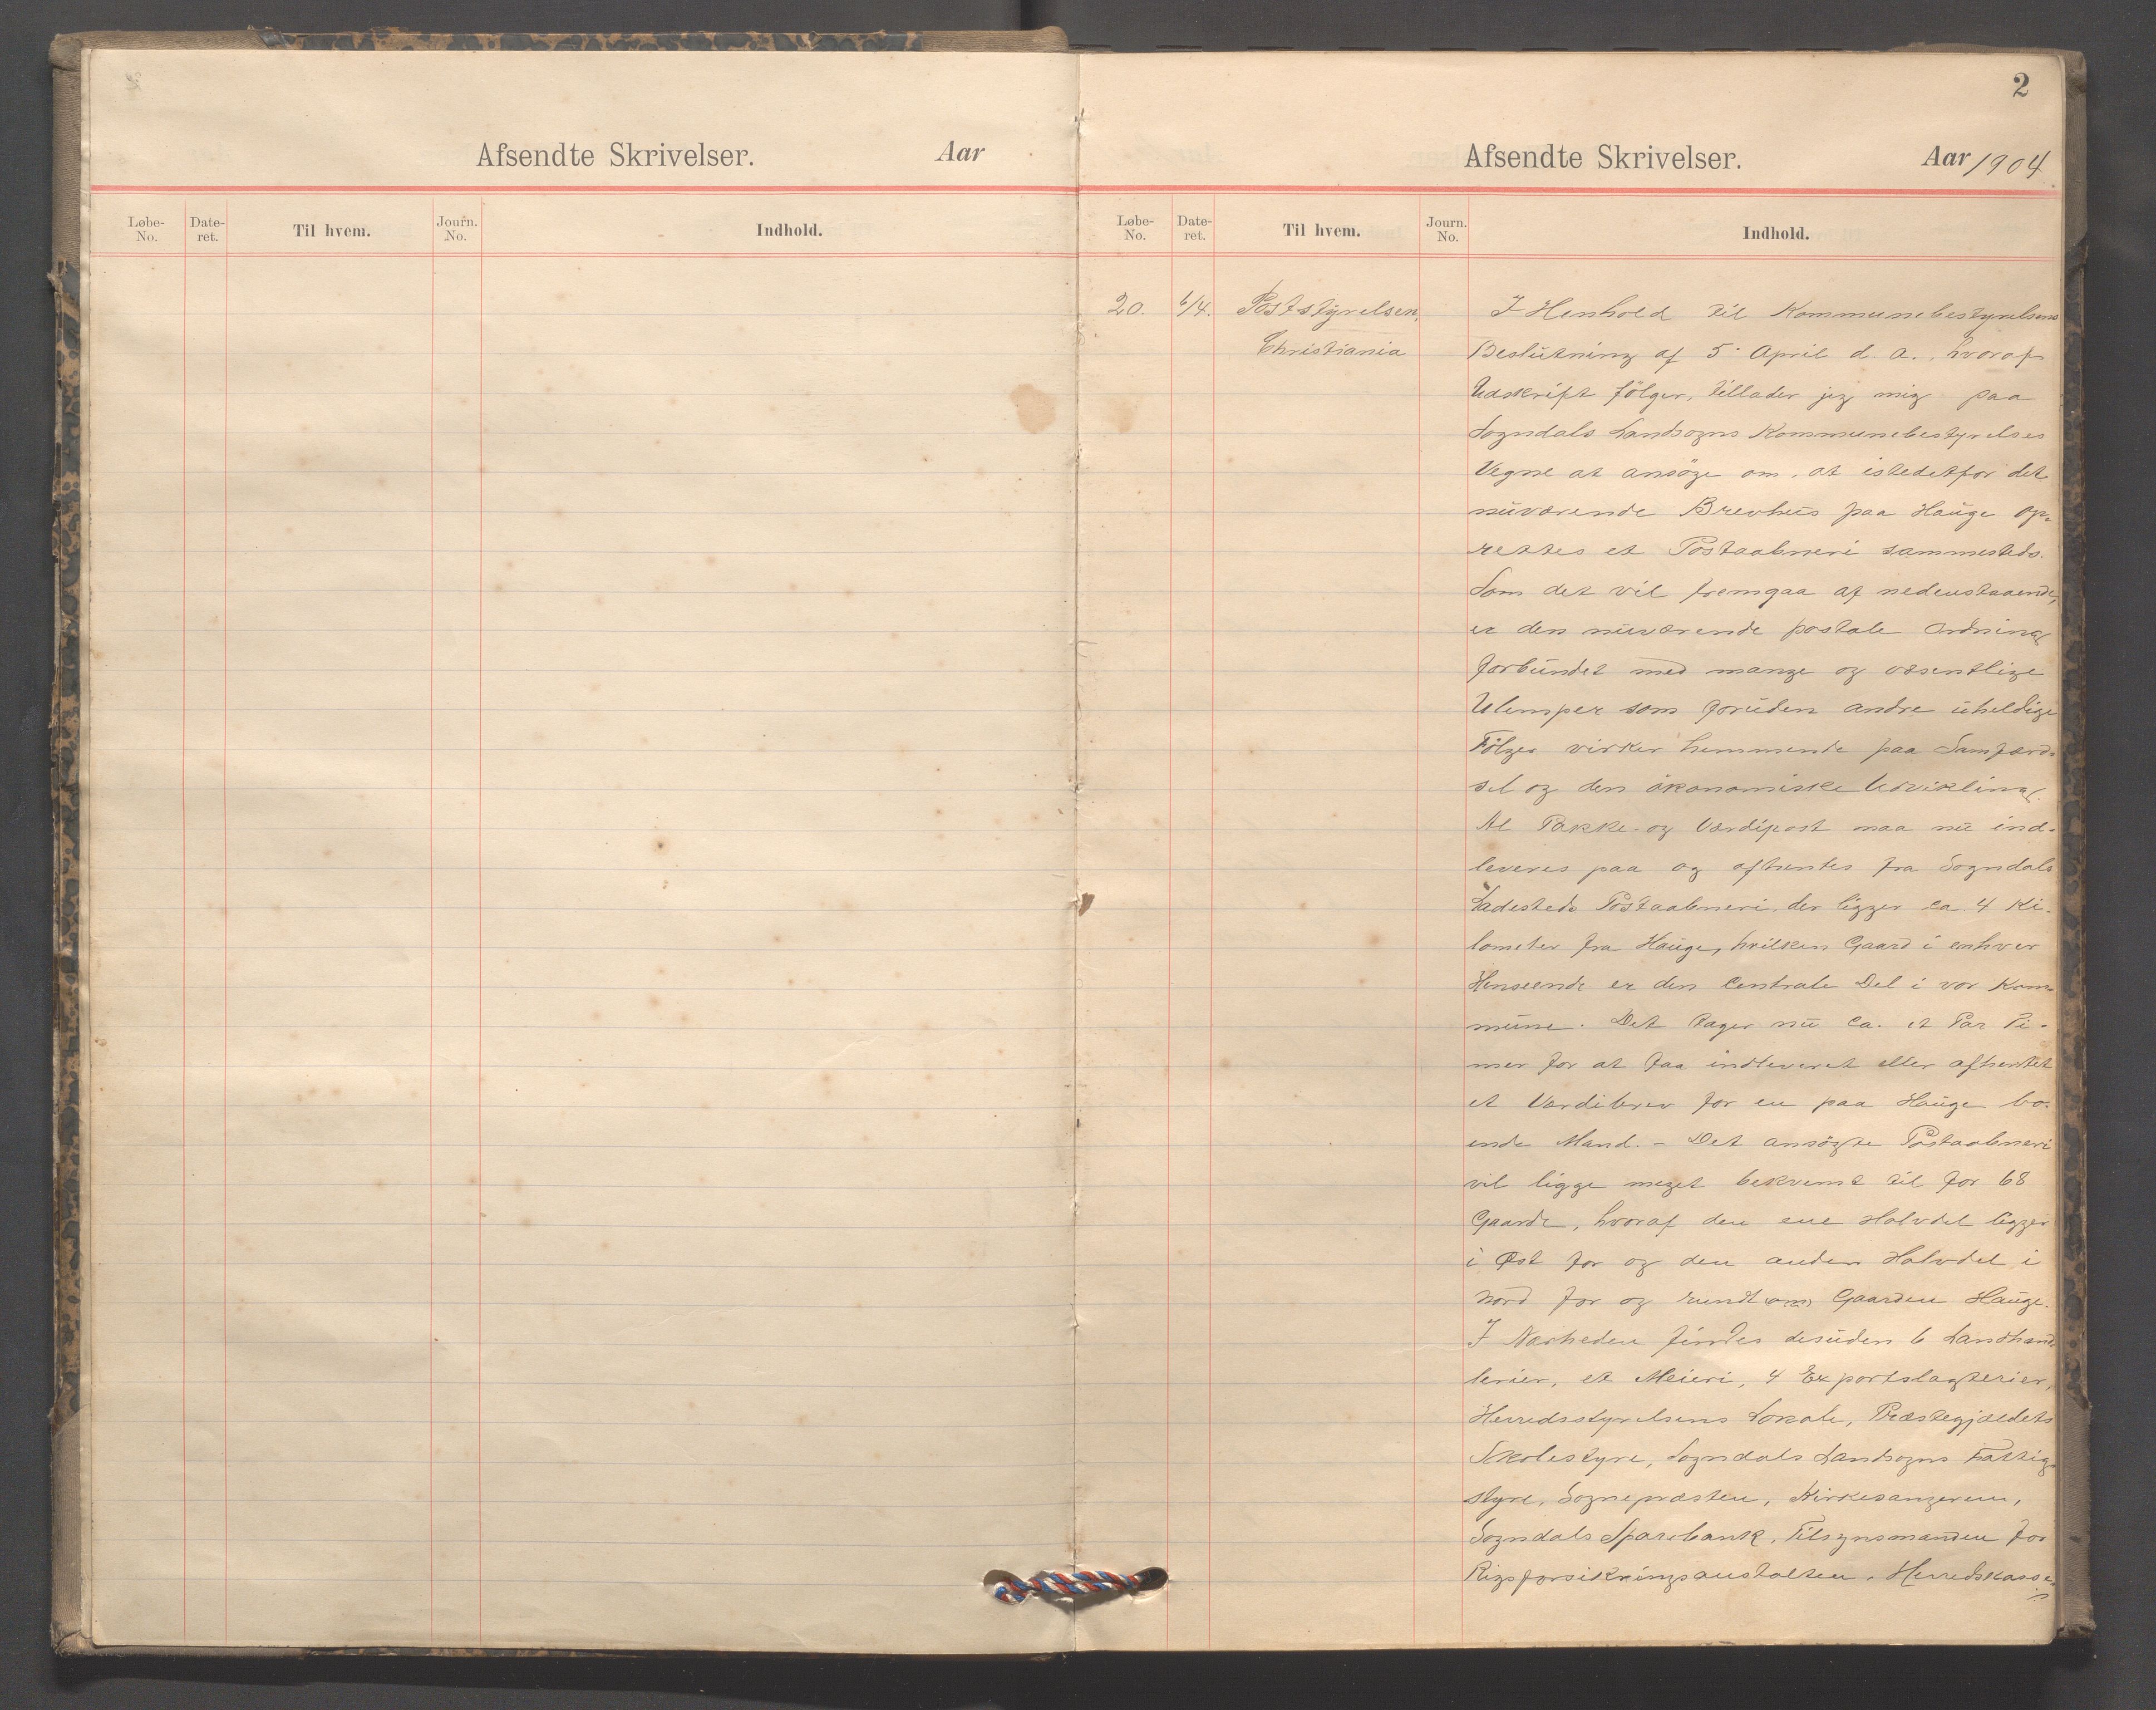 Afsendte Skrivelser. Aar
Løbe-No. Date-ret. Til hvem. Journ. No. Indhold.
2
Afsendte Skrivelser. Aar 1904
Løbe-No. Date-ret. Til hvem. Journ. No. Indhold.
20. 6/4. Poststyrelsen, I Henhold til Kommunebestyrelsens
Christiania Beslutning af 5. April d. a., hvoraf
Udskrift følger, tillader jeg mig paa
Sogndals Landsogns Kommunebestyrelses
Vegne at ansøge om, at istedetfor det
nuværende Brevhus paa Hauge op-
rettes et Postaabneri sammesteds.
Som det vil fremgaa af nedenstaaende,
er den nuværende postale Ordning
forbundet med mange og væsentlige
Ulemper som foruden andre uheldige
Følger virker hemmende paa Samfærd-
sel og den økonomiske Udvikling.
Al Pakke- og Værdipost maa nu ind-
leveres paa og afhentes fra Sogndals
Ladesteds Postaabneri, der ligger ca. 4 Ki-
lometer fra Hauge, hvilken Gaard i enhver
Henseende er den Centrale Del i vor Kom-
mune. Det tager nu ca. et Par Ti-
mer for at faa indleveret eller afhentet
et Værdibrev for en paa Hauge bo-
ende Mand. - Det ansøgte Postaabneri
vil ligge meget bekvemt til for 68
Gaarde, hvoraf den ene Halvdel ligger
i Øst for og den anden Halvdel i
Nord for og rundt om Gaarden Hauge.
I Nærheden findes desuden 6 Landhand-
lerier, et Meieri, 4 Exportslagterier,
Herredsstyrelsens Lokale, Præstegjældets
Skolestyre, Sogndals Landsogns Fattig-
styre, Sognepræsten, Kirkesangeren,
Sogndals Sparebank, Tilsynsmanden for
Rigsforsikringsanstalten, Herredskasse-